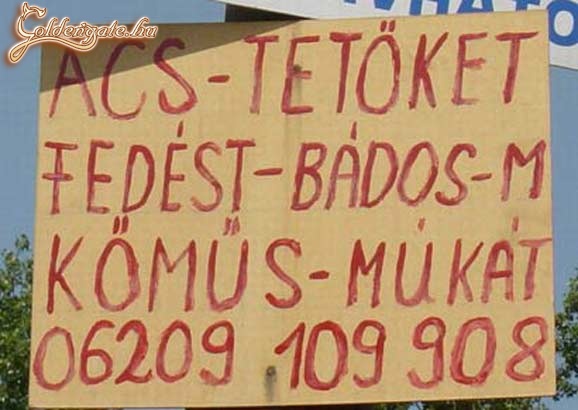 Goldengate.hu
ACS-TETŐKET
FEDÉST-BÁDOS-M
KŐMŰS-MÚKÁT
06209 109 908